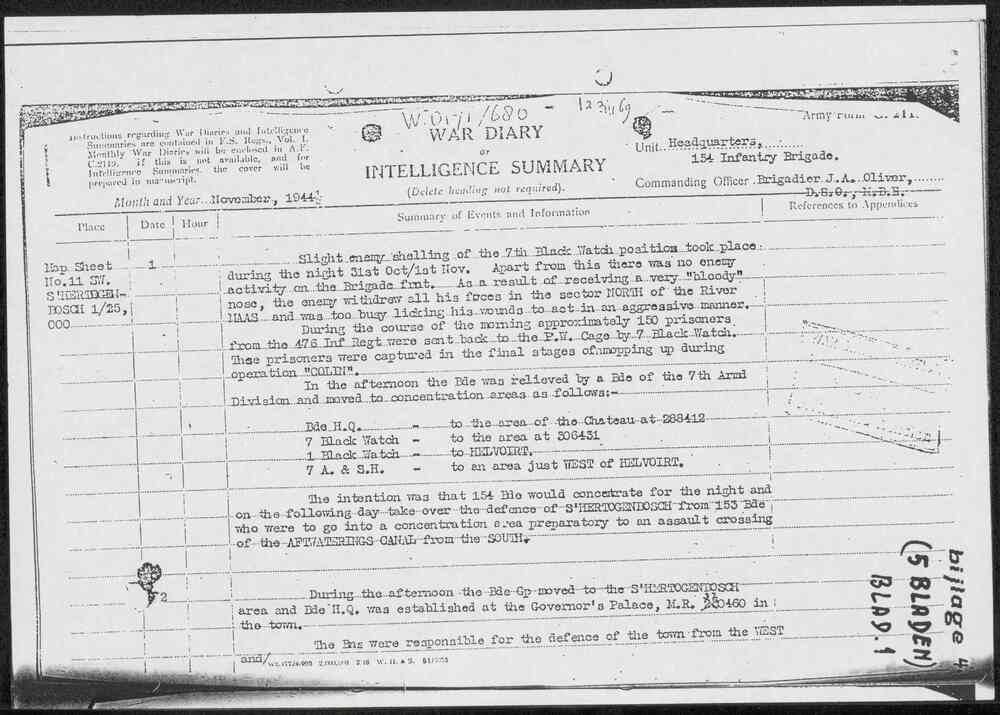 W.O.171/680
Army Form
Instructions regarding War Diaries and Intelligence
Summaries are contained in F.S. Regs., Vol. I.
Monthly War Diaries will be enclosed in A.F.
C.2119. if this is not available, and for
Intelligence Summaries, the cover will be
prepared in manuscript.
WAR DIARY
or
INTELLIGENCE SUMMARY
(Delete heading not required).
Unit Headquarters,
154 Infantry Brigade.
Commanding Officer Brigadier J.A. Oliver,
D.S.O., M.B.E.
Month and Year November, 1944
Place Date Hour Summary of Events and Information References to Appendices
Map Sheet 1
No.11 SW.
S'HERTOGEN-
BOSCH 1/25,
000
Slight enemy shelling of the 7th Black Watch position took place
during the night 31st Oct/1st Nov. Apart from this there was no enemy
activity on the Brigade frnt. As a result of receiving a very "bloody"
nose, the enemy withdrew all his foces in the sector NORTH of the River
MAAS and was too busy licking his wounds to act in an aggressive manner.
During the course of the morning approximately 150 prisoners
from the 476 Inf Regt were sent back to the P.W. Cage by 7 Black Watch.
These prisoners were captured in the final stages of mopping up during
operation "COLIN".
In the afternoon the Bde was relieved by a Bde of the 7th Armd
Division and moved to concentration areas as follows:-
Bde H.Q. - to the area of the Chateau at 288412
7 Black Watch - to the area at 306431
1 Black Watch - to HELVOIRT.
7 A. & S.H. - to an area just WEST of HELVOIRT.
The intention was that 154 Bde would concentrate for the night and
on the following day take over the defence of S'HERTOGENBOSCH from 153 Bde
who were to go into a concentration area preparatory to an assault crossing
of the AFTWATERINGS CANAL from the SOUTH.
2 During the afternoon the Bde Gp moved to the S'HERTOGENBOSCH
area and Bde H.Q. was established at the Governor's Palace, M.R. 0460 in
the town.
The Bns were responsible for the defence of the town from the WEST
and/
W. H. & S. 51/
bijlage 4
(5 BLADEN)
BLAD. 1